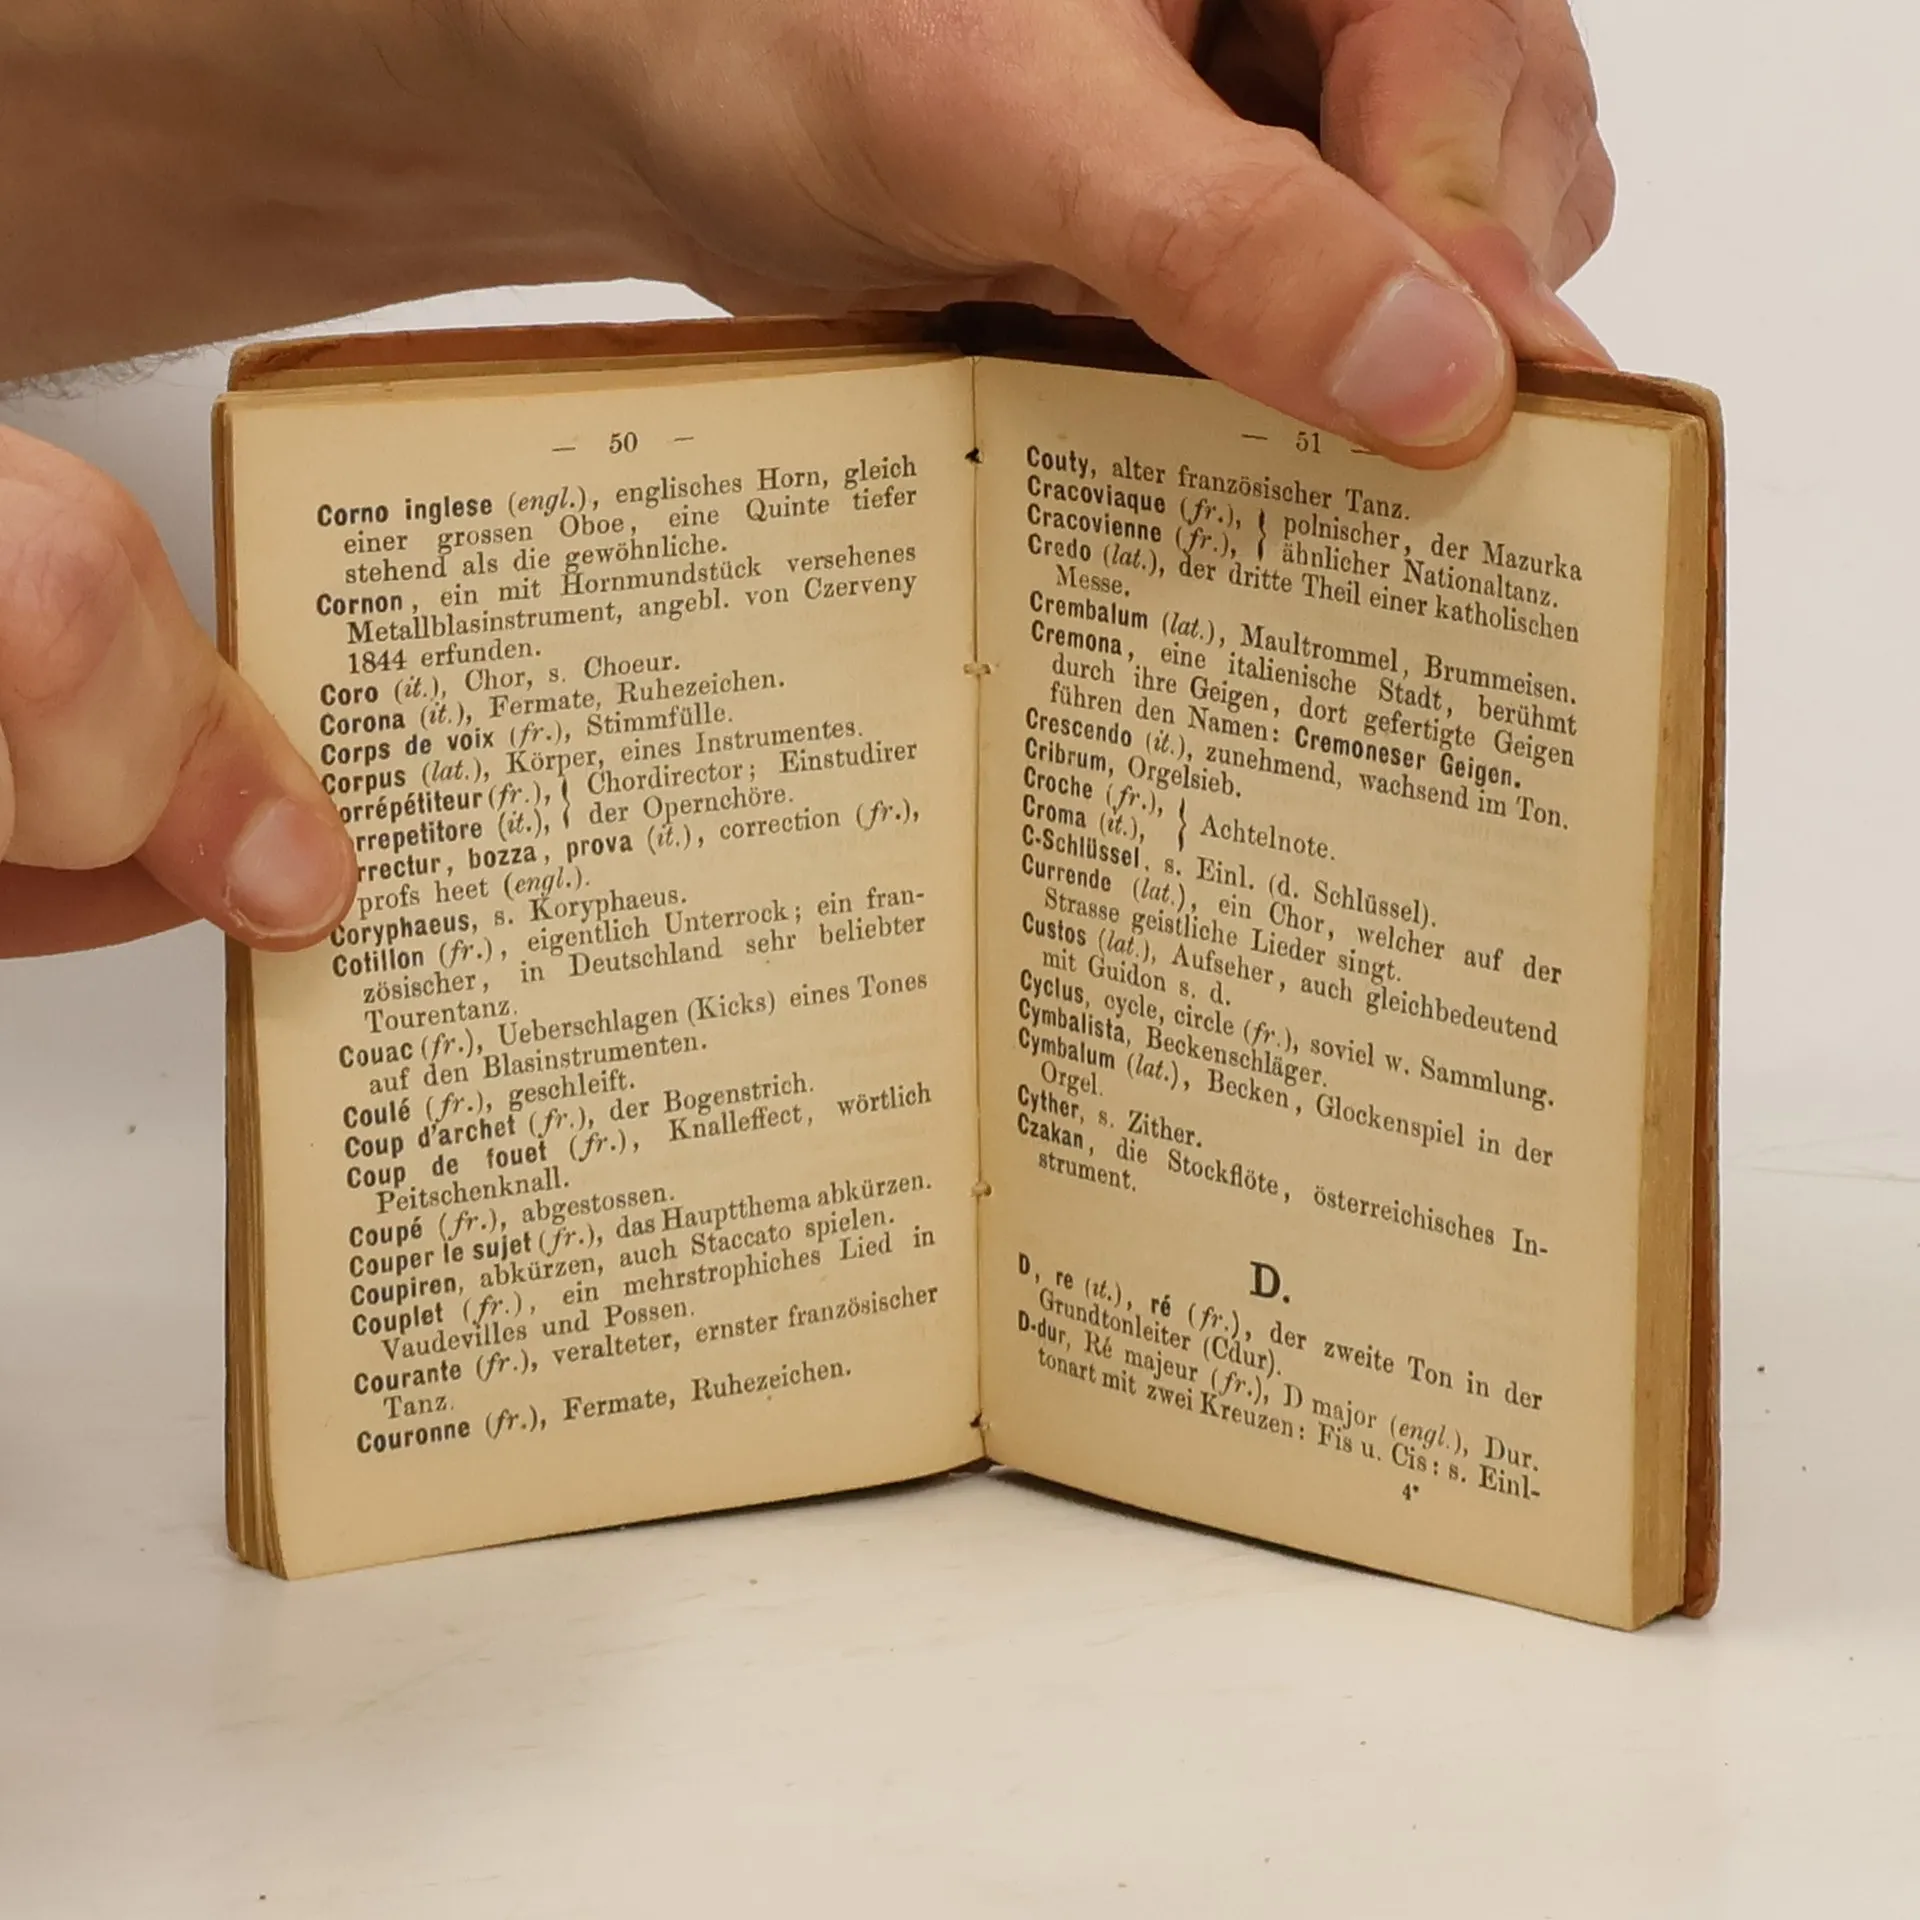 — 50 —
Corno inglese (engl.), englisches Horn, gleich
einer grossen Oboe, eine Quinte tiefer
stehend als die gewöhnliche.
Cornon, ein mit Hornmundstück versehenes
Metallblasinstrument, angebl. von Czerveny
1844 erfunden.
Coro (it.), Chor, s. Choeur.
Corona (it.), Fermate, Ruhezeichen.
Corps de voix (fr.), Stimmfülle.
Corpus (lat.), Körper, eines Instrumentes.
orrépétiteur (fr.), } Chordirector; Einstudirer
rrepetitore (it.), } der Opernchöre.
rrectur, bozza, prova (it.), correction (fr.),
profs heet (engl.).
Coryphaeus, s. Koryphaeus.
Cotillon (fr.), eigentlich Unterrock; ein fran-
zösischer, in Deutschland sehr beliebter
Tourentanz.
Couac (fr.), Ueberschlagen (Kicks) eines Tones
auf den Blasinstrumenten.
Coulé (fr.), geschleift.
Coup d'archet (fr.), der Bogenstrich.
Coup de fouet (fr.), Knalleffect, wörtlich
Peitschenknall.
Coupé (fr.), abgestossen.
Couper le sujet (fr.), das Hauptthema abkürzen.
Coupiren, abkürzen, auch Staccato spielen.
Couplet (fr.), ein mehrstrophiches Lied in
Vaudevilles und Possen.
Courante (fr.), veralteter, ernster französischer
Tanz.
Couronne (fr.), Fermate, Ruhezeichen.
— 51 —
Couty, alter französischer Tanz.
Cracoviaque (fr.), } polnischer, der Mazurka
Cracovienne (fr.), } ähnlicher Nationaltanz.
Credo (lat.), der dritte Theil einer katholischen
Messe.
Crembalum (lat.), Maultrommel, Brummeisen.
Cremona, eine italienische Stadt, berühmt
durch ihre Geigen, dort gefertigte Geigen
führen den Namen: Cremoneser Geigen.
Crescendo (it.), zunehmend, wachsend im Ton.
Cribrum, Orgelsieb.
Croche (fr.), } Achtelnote.
Croma (it.),
C-Schlüssel, s. Einl. (d. Schlüssel).
Currende (lat.), ein Chor, welcher auf der
Strasse geistliche Lieder singt.
Custos (lat.), Aufseher, auch gleichbedeutend
mit Guidon s. d.
Cyclus, cycle, circle (fr.), soviel w. Sammlung.
Cymbalista, Beckenschläger.
Cymbalum (lat.), Becken, Glockenspiel in der
Orgel.
Cyther, s. Zither.
Czakan, die Stockflöte, österreichisches In-
strument.
D.
D, re (it.), ré (fr.), der zweite Ton in der
Grundtonleiter (Cdur).
D-dur, Ré majeur (fr.), D major (engl.), Dur.
tonart mit zwei Kreuzen: Fis u. Cis: s. Einl-
4*